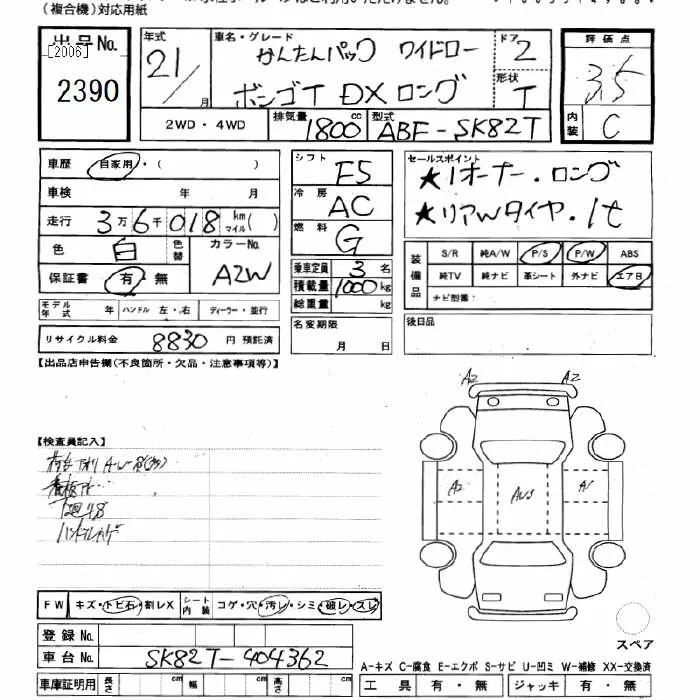 (複合機)対応用紙
出品No.
[2006]
2390
年式
21/月
車名・グレード
かんたんパック ワイドロー
ボンゴT DX ロング
ドア
2
形状
T
評価点
3.5
内装
C
2WD・4WD
排気量
1800cc
型式
ABF-SK82T
車歴
自家用・( )
車検 年 月
走行 3万6千018 km マイル( )
色 白 色替
カラーNo.
A2W
保証書 有・無
モデル年式 年 ハンドル 左・右 ディーラー・並行
リサイクル料金 8830 円 預託済
シフト
F5
冷房
AC
燃料
G
乗車定員 3 名
積載量 1000 kg
総重量 kg
名変期限
月 日
セールスポイント
★1オーナー・ロング
★リアWタイヤ・1t
装備品
S/R 純A/W P/S P/W ABS
純TV 純ナビ 革シート 外ナビ エアB
ナビ型番:
後日品
【出品店申告欄(不良箇所・欠品・注意事項等)】
【検査員記入】
下廻サビ
A2 A2
A2 A1
FW キズ・トビ石・割レX シート内装 コゲ・穴・汚レ・シミ・破レ・スレ
登録No.
車台No. SK82T-404362
車庫証明用 長さ cm 幅 cm 高さ cm
スペア
A-キズ C-腐食 E-エクボ S-サビ U-凹ミ W-補修 XX-交換済
工具 有・無 ジャッキ 有・無